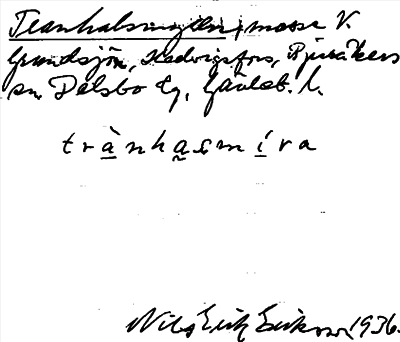 Tranhalsmyran, mosse V.
Grundsjön, Hedvigsfors, Bjuråkers
sn, Delsbo tg, Gävleb. l.
trànhasmíra
Nils Erik Eriksson 1936.